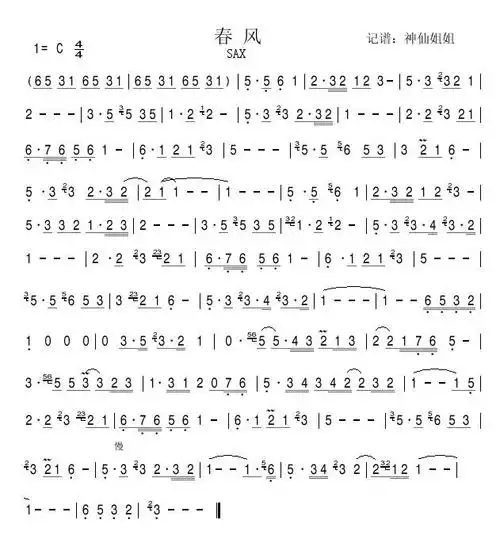 春 风
SAX
1= C 4/4
记谱：神仙姐姐
(65 31 65 31 | 65 31 65 31) | 5·5 6 1 | 2·32 12 3- | 5·3 2321 |
2--- | 3·5 35 35 | 1·2 12- | 5·23 2·32 | 1--- | 2·23 21 |
6·765 56 1- | 6·121 23 | 5--- | 35·5 56 53 | 3 216- |
5·3 23 2·32 | 211-- | 1--- | 5·5 56 1 | 2·32 123- |
5·332 1·23 | 2--- | 3·5 3535 | 321·2 12- | 5·23·4 23·2 |
1--- | 2·2 23 2321 | 6·76 56 | 1- | 6·121 23 | 5--- |
35·5 56 53 | 3 216- | 5·23·4 23·2 | 1--- | 1--6532 |
1 0 0 0 | 0 3·5 23·2 1 | 0 565 5·43 213 | 221765- |
3·565533323 | 1·312076 | 5·34342232 | 1--15 |
2·2 23 2321 | 6·76 56 1- | 6·121 23 | 5--- | 35·5 5653 |
慢
23 216- | 5·3 23 2·32 | 1--1·6 | 5·34323 | 23212- |
1--- | 6532 | 23--- ‖